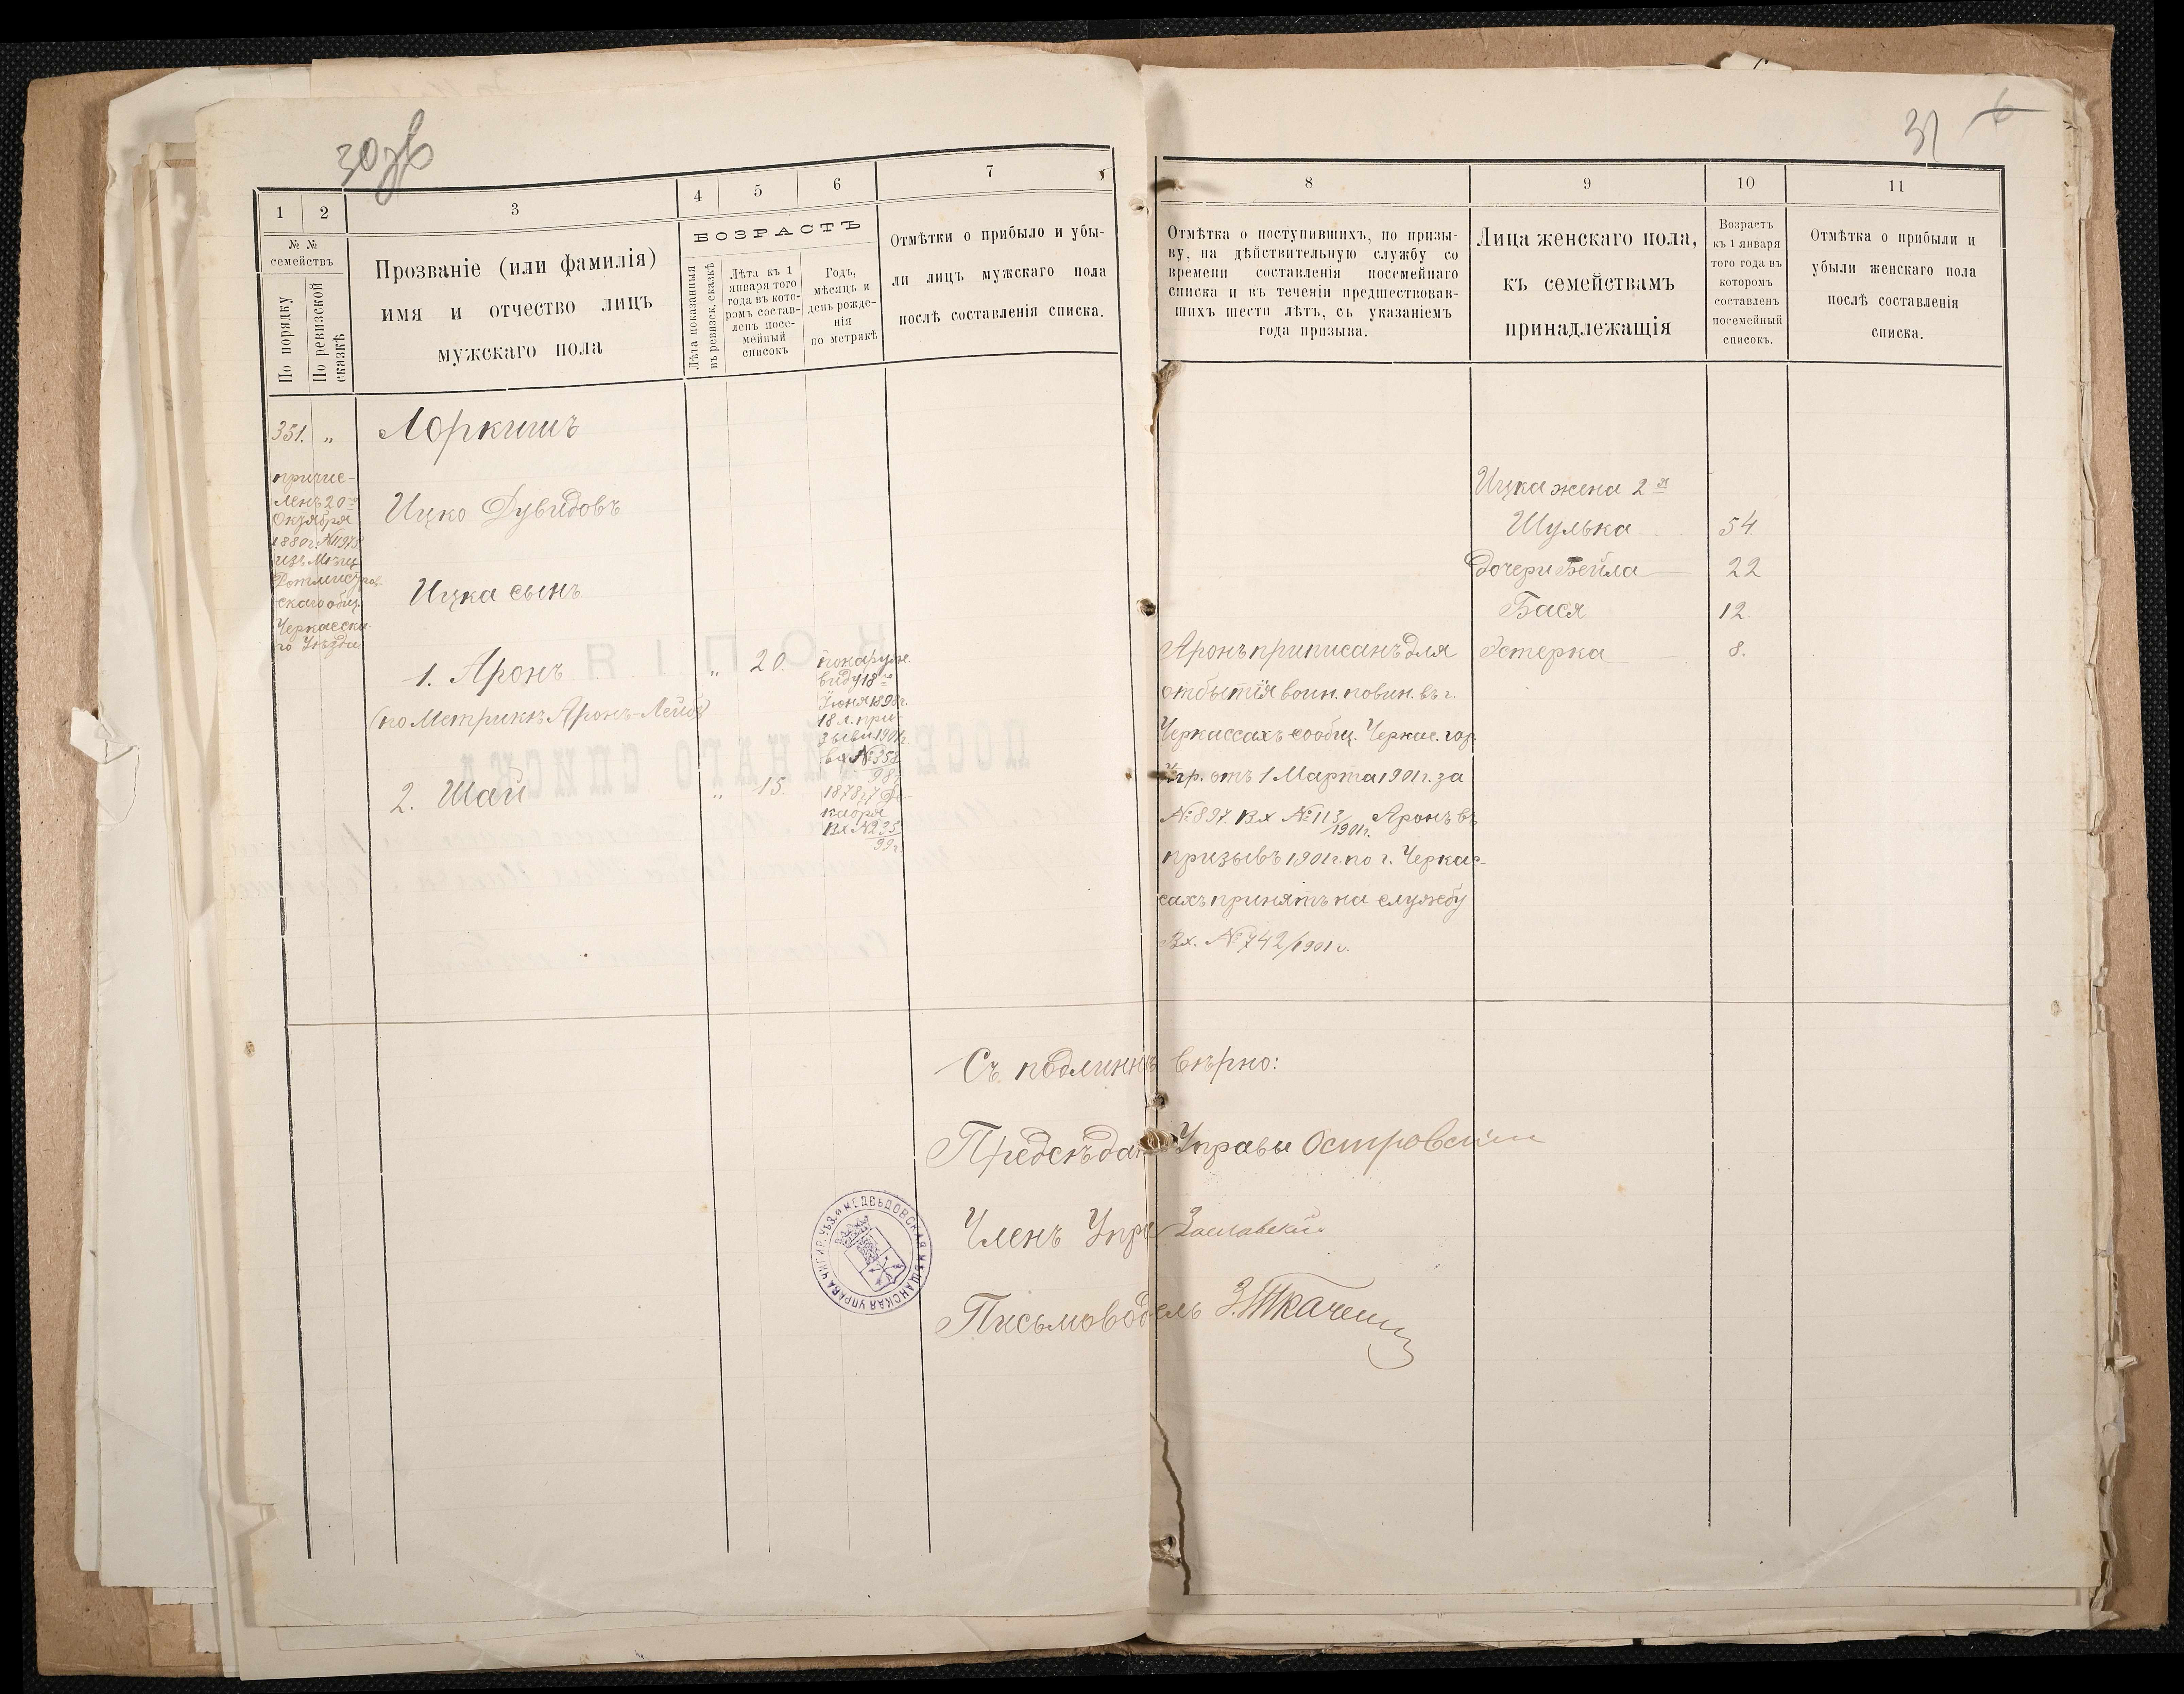 30 об
31
6
1
2
3
4
5
6
7
8
9
10
11
№ №
семействъ
По порядку
По ревизской
сказкѣ
Прозваніе (или фамилія)
имя и отчество лицъ
мужскаго пола
ВОЗРАСТЪ
Лѣта показанныя
въ ревизск. сказкѣ
Лѣта къ 1
января того
года въ кото-
ромъ состав-
ленъ посе-
мейный
списокъ
Годъ,
мѣсяцъ и
день рожде-
нія
по метрикѣ
Отмѣтки о прибыло и убы-
ли лицъ мужскаго пола
послѣ составленія списка.
Отмѣтка о поступившихъ, по призы-
ву, на дѣйствительную службу со
времени составленія посемейнаго
списка и въ теченіи предшествовав-
шихъ шести лѣтъ, съ указаніемъ
года призыва.
Лица женскаго пола,
къ семействамъ
принадлежащія
Возрастъ
къ 1 января
того года въ
котором
составленъ
посемейный
списокъ.
Отмѣтка о прибыли и
убыли женскаго пола
послѣ составленія
списка.
351. „
причис-
ленъ 20го
Октября
1880 г.
изъ Мѣщ.
Ротмистров-
скаго общ.
Черкасска-
го Уѣзда
Лоркишъ
Ицко Дувидовъ
Ицка сынъ
1. Аронъ „ 20.
(по Метрикѣ Аронъ-Лейбъ)
по наруж.
виду 18го
Іюня 1898 г.
18 л. при-
зыви 1901 г.
вх № 358
98 г.
2. Шай „ 15.
1878 г. 7 Де-
кабря
Вх № 235
99 г.
Аронъ приписанъ для
отбытія воин. повин. въ г.
Черкассахъ сообщ. Черкас. гор.
Упр. отъ 1 Марта 1901 г. за
№ 897. Вх № 113/1901 г. Аронъ въ
призывъ 1901 г. по г. Черкас-
сахъ принятъ на службу
Вх. № 742/1901 г.
Ицка жена 2я
Шулька 54.
дочери Бейла 22
Бася 12.
Эстерка 8.
Съ подлинн вѣрно:
Предсѣдат Управы Островскій
Членъ Упр Заславскій
Письмовод ель З. Ткаченко
МЕДВѢДОВСКАЯ МѢЩАНСКАЯ УПРАВА ЧИГИР. УѢЗ.
КОПІЯ
ПОСЕМЕЙНАГО СПИСКА